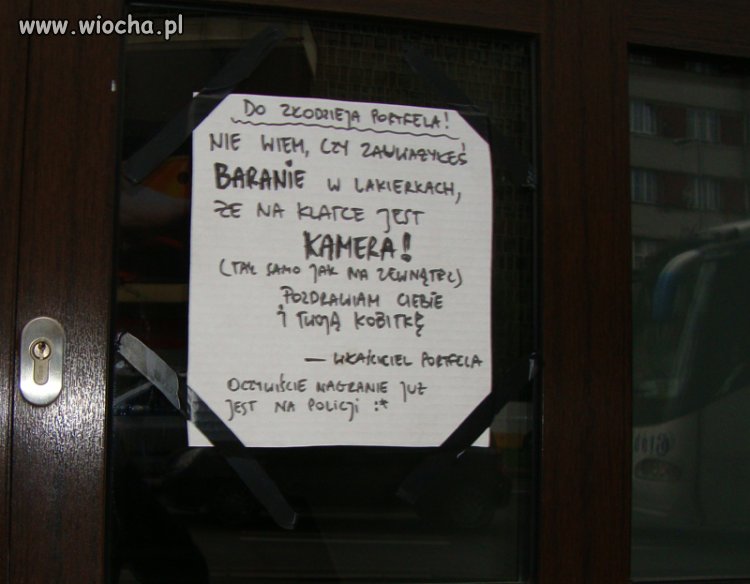 www.wiocha.pl
DO ZŁODZIEJA PORTFELA!
NIE WIEM, CZY ZAUWAŻYŁEŚ
BARANIE W LAKIERKACH,
ŻE NA KLATCE JEST
KAMERA!
(TAK SAMO JAK NA ZEWNĄTRZ)
POZDRAWIAM CIEBIE
I TWOJĄ KOBITKĘ
— WŁAŚCICIEL PORTFELA
OCZYWIŚCIE NAGRANIE JUŻ
JEST NA POLICJI :*